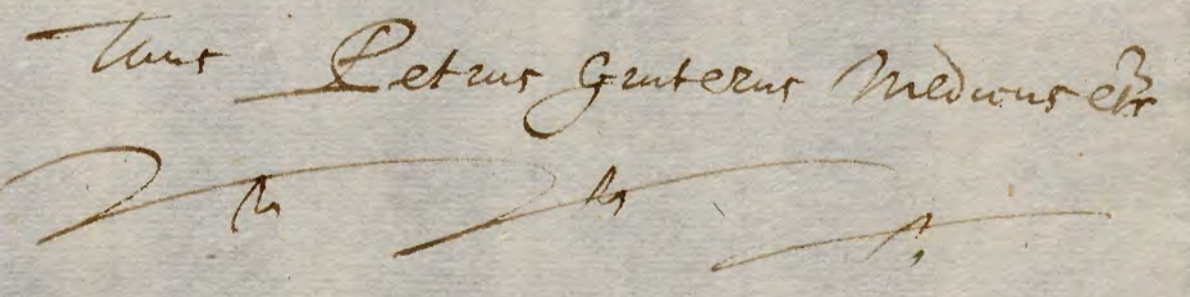 Tuus Petrus Gruterus Medicus